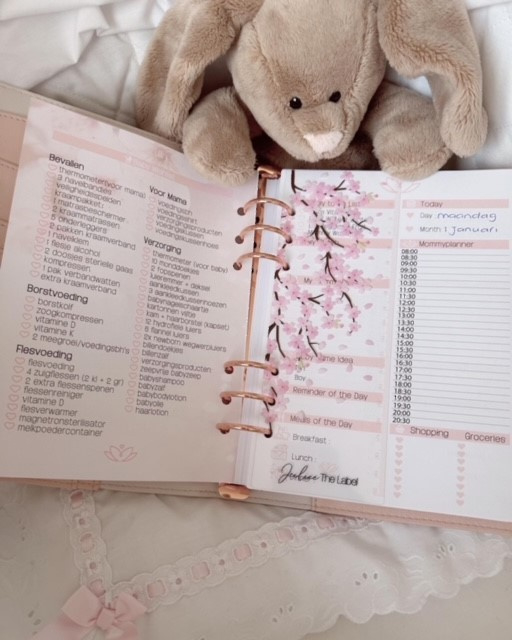 Bevallen
thermometer(voor mama)
3 navelbandjes
veiligheidspelden
kraampakket:
1 matrasbeschermer
2 kraammatrassen
5 onderleggers
2 pakken kraamverband
1 navelklem
1 flesje alcohol
2 doosjes steriele gaas
kompressen
1 pak verbandwatten
extra kraamverband
Borstvoeding
borstkolf
zoogkompressen
vitamine D
vitamine K
2 meegroei/voedingsbh's
Flesvoeding
4 zuigflessen (2 kl + 2 gr)
2 extra flessenspenen
flessenreiniger
vitamine D
flesverwarmer
magnetronsterilisator
melkpoedercontainer
Voor Mama
voedingsbh
verzorgingsproducten
voedingskussen
voedingskussenhoes
Verzorging
thermometer (voor baby)
10 monddoekjes
2 fopspenen
luieremmer + deksel
aankleedkussen
2 aankleedkussenhoezen
babynagelschaartje
kartonnen vijltje
kam + haarborstel (kapset)
12 hydrofiele luiers
6 flanel luiers
2x newborn wegwerpluiers
billendoekjes
billenzalf
verzorgingsproducten
zeepvrije babyzeep
babyshampoo
babyzalf
babybodylotion
babyolie
haarlotion
Idea
Boy
Reminder of the Day
Meals of the Day
Breakfast
Lunch
The Label
Today
Day maandag
Month 1 januari
Mommyplanner
08:00
08:30
09:00
09:30
10:00
10:30
11:00
11:30
12:00
12:30
13:00
13:30
14:00
14:30
15:00
15:30
16:00
16:30
17:00
17:30
18:00
18:30
19:00
19:30
20:00
20:30
Shopping Groceries